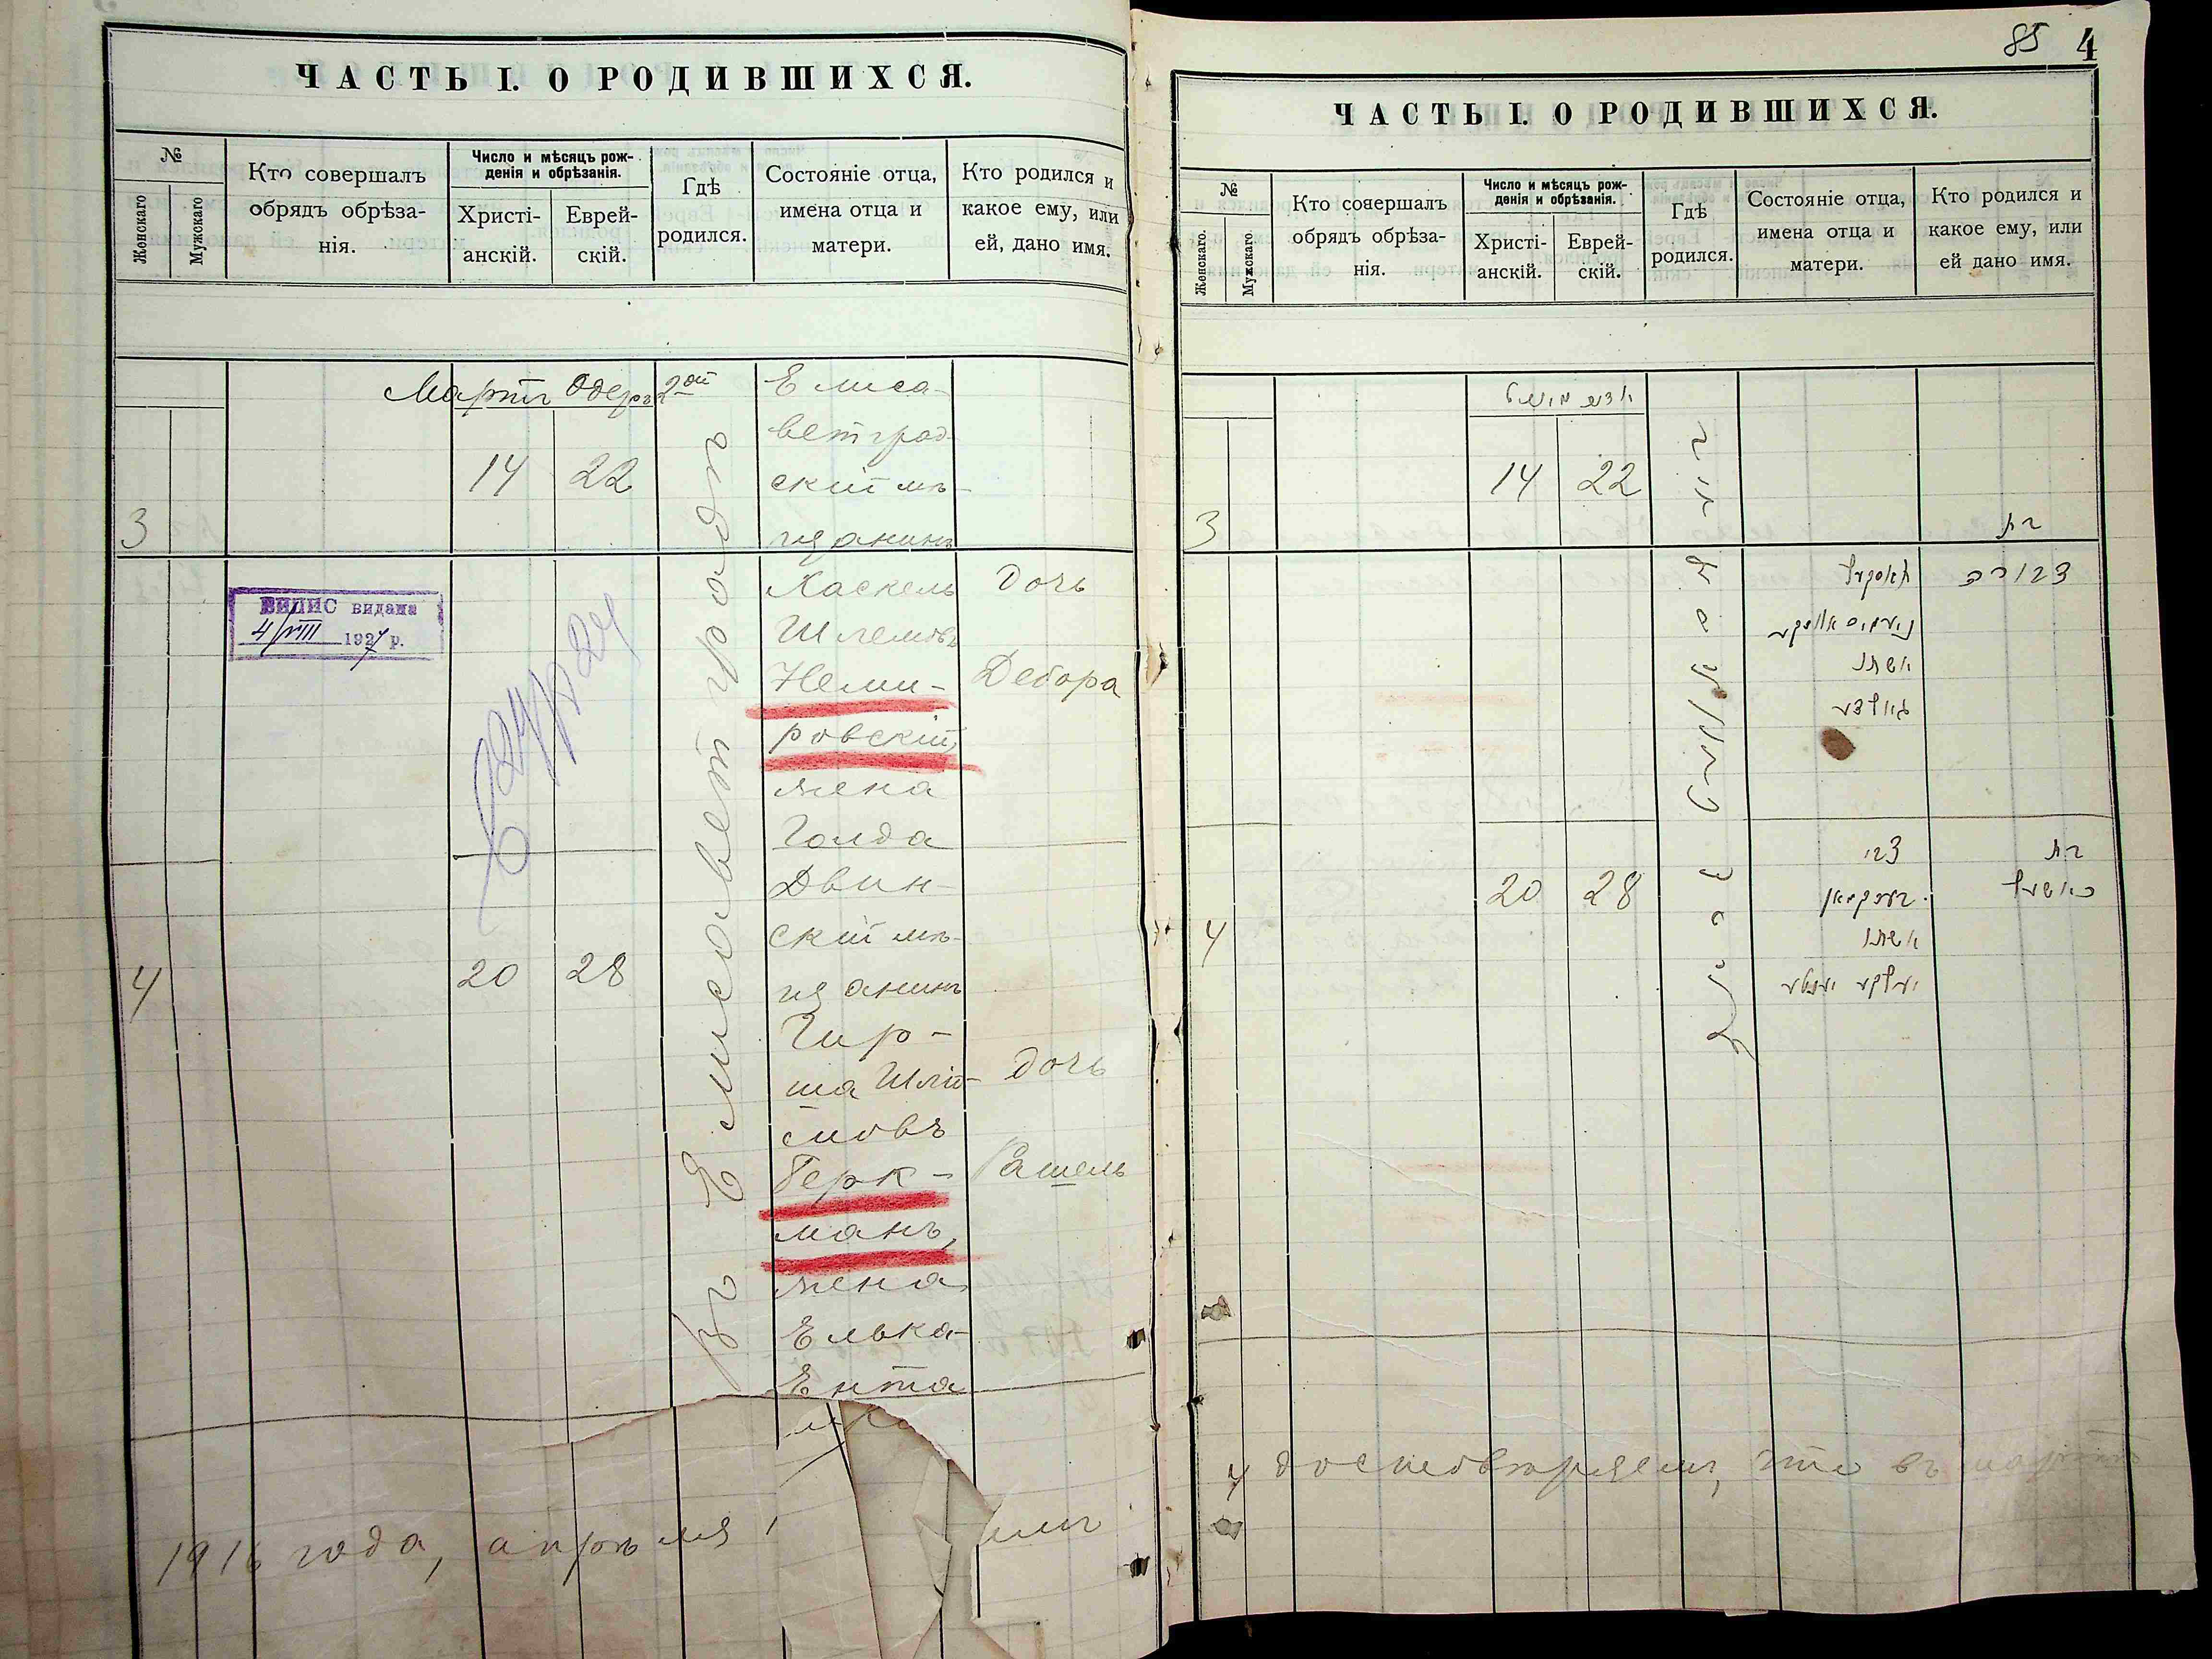 ЧАСТЬ I. О РОДИВШИХСЯ.
№
Женскаго
Мужскаго
Кто совершалъ
обрядъ обрѣза-
нія.
Число и мѣсяцъ рож-
денія и обрѣзанія.
Христі-
анскій.
Еврей-
скій.
Гдѣ
родился.
Состояніе отца,
имена отца и
матери.
Кто родился и
какое ему, или
ей, дано имя.
Мартъ Одеръ 2ой
3
14
22
Въ Елисаветградѣ
Елиса-
ветград-
скій мѣ-
щанинъ
Хаскель
Шлемовъ
Неми-
ровскій,
жена
Голда
Дочь
Дебора
ВИПИС видама
4/VIII 1927 р.
4
20
28
Двин-
скій мѣ-
щанинъ
Гир-
ша Шлё-
мовъ
Герк-
манъ,
жена
Елька-
Ента
Дочь
Рашель
1916 года, апрѣля
85 4
ЧАСТЬ I. О РОДИВШИХСЯ.
№
Женскаго.
Мужскаго.
Кто совершалъ
обрядъ обрѣза-
нія.
Число и мѣсяцъ рож-
денія и обрѣзанія.
Христі-
анскій.
Еврей-
скій.
Гдѣ
родился.
Состояніе отца,
имена отца и
матери.
Кто родился и
какое ему, или
ей дано имя.
3
14
22
בת
דבורה
אשתו
גאלדע
4
20
28
צבי
בערקמאן
אשתו
יעלקע יענטע
בת
ראשעל
что въ мартѣ